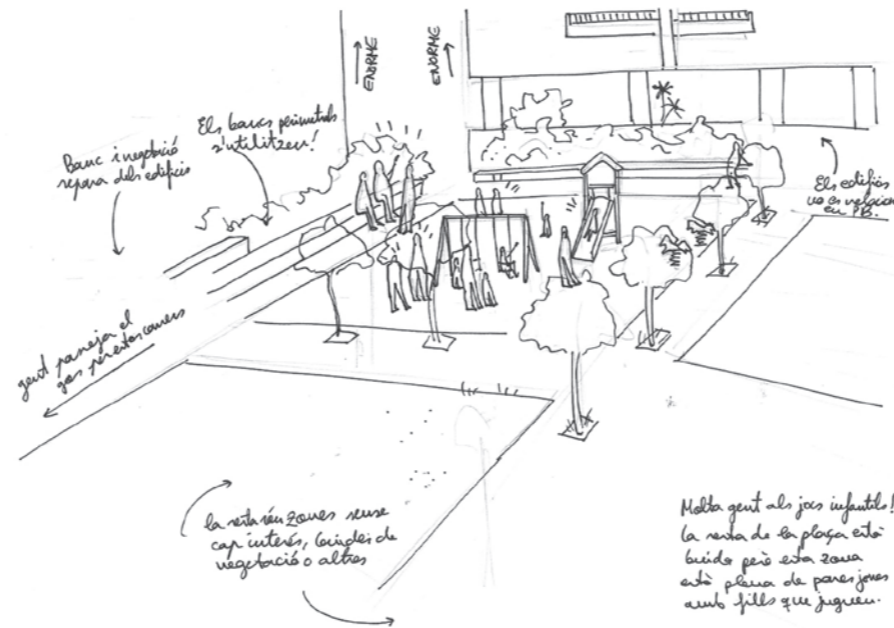 ENORME
ENORME
Els bancs perimetrals
s'utilitzen!
Banc i vegetació
separa dels edificis
Els edificis
no es
en PB.
gent passeja el
gos per estos carrers
la resta són zones sense
cap interés, buides de
vegetació o altres
Molta gent als jocs infantils!
la resta de la plaça està
buida però esta zona
està plena de pares joves
amb fills que juguen.